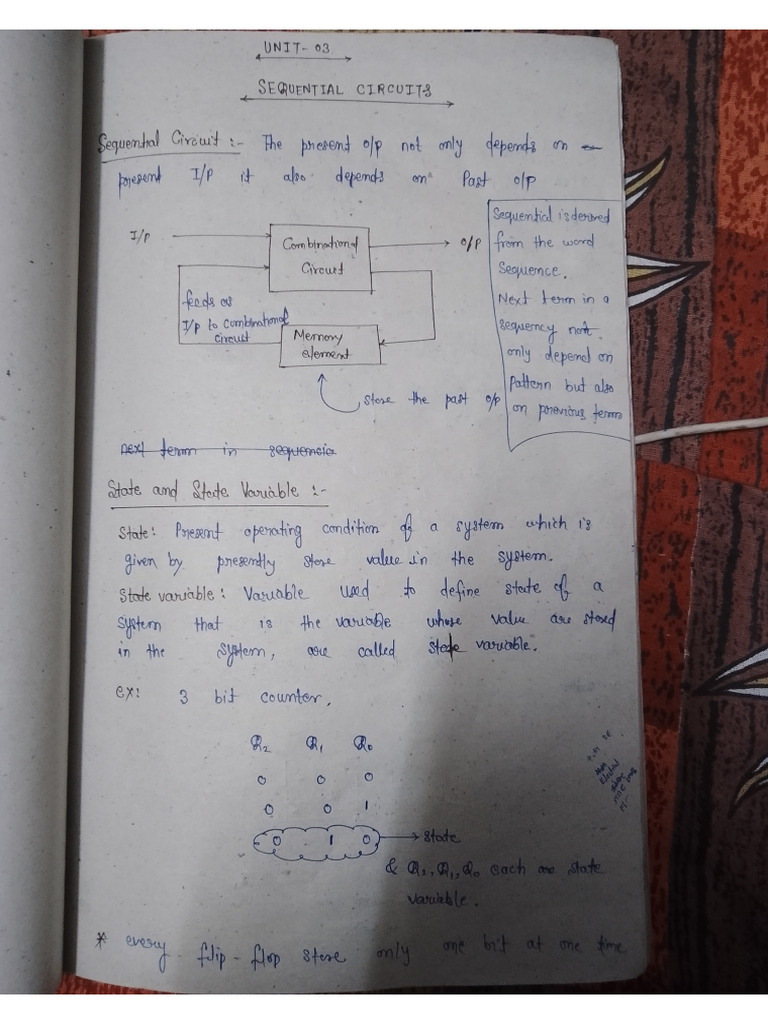 UNIT-03
SEQUENTIAL CIRCUITS
Sequential Circuit :- The present o/p not only depends on
present I/p it also depends on Past o/p
I/p
Combinational
Circuit
o/p
feeds as
I/p to combinational
circuit
Memory
element
store the past o/p
Sequential is derived
from the word
Sequence.
Next term in a
sequency not
only depend on
Pattern but also
on previous term
next term in sequencia
State and State Variable :-
State: Present operating condition of a system which is
given by presently store value in the system.
State variable: Variable used to define state of a
system that is the variable whose value are stored
in the system, are called state variable.
ex: 3 bit counter.
Q2 Q1 Q0
0 0 0
0 0 1
0 1 0 → state
& Q2, Q1, Q0 each are state
variable.
* every flip-flop store only one bit at one time